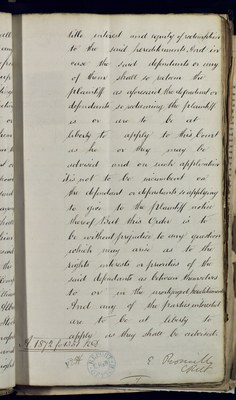 title interest and equity of redemption
to the said hereditaments And in
case the said defendants or any
of them shall so redeem the
plaintiff as aforesaid the defendant or
defendants so redeeming the plaintiff
is or are to be at
liberty to apply to this Court
as he or they may be
advised and on such application
it is not to be incumbent on
the defendant or defendants so applying
to give to the plaintiff notice
thereof But this Order is to
be without prejudice to any question
which may arise as to the
rights interests or priorities of the
said defendants as between themselves
to or in the mortgaged hereditaments
And any of the parties interested
are to be at liberty to
apply as they shall be advised
A 1872
E